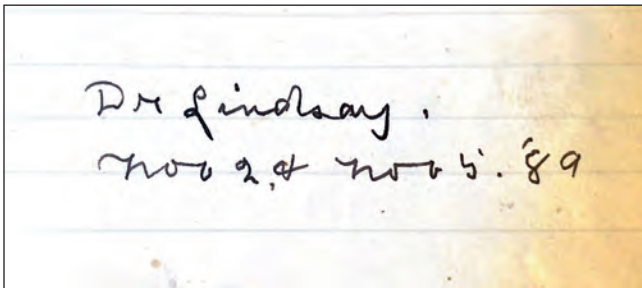 Dr Lindsay.
Nov 2, & Nov 5. '89